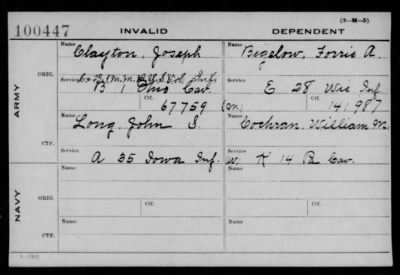 (3-M-3)
100447
INVALID
DEPENDENT
ARMY
ORIG.
Name
Clayton, Joseph
Service
B 1 Ohio Cav.
Ctf.
67759
Name
Bigelow, Forris A.
Service
E 28 Wis Inf
Ctf.
141987
CTF.
Name
Long, John S.
Service
A 35 Iowa Inf
Name
Cochran, William M.
Service
W. K 14 Pa Cav.
NAVY
ORIG.
Name
Service
Ctf.
Name
Service
Ctf.
CTF.
Name
Name